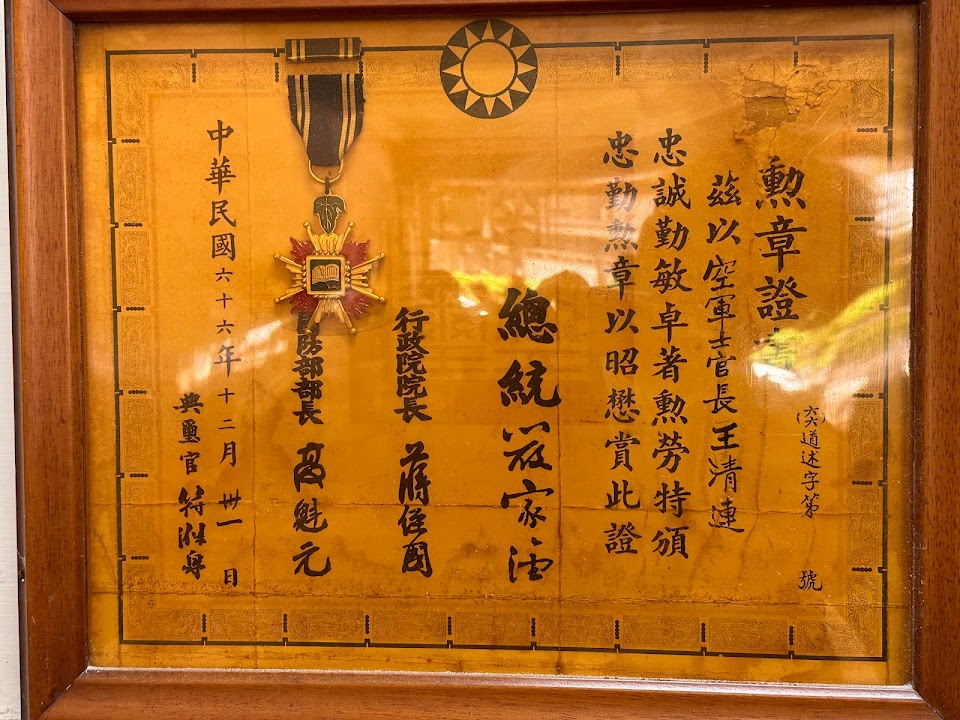 勲章證書
(六六)道述字第 號
茲以空軍士官長王清連
忠誠勤敏卓著勲勞特頒
忠勤勲章以昭懋賞此證
總統 嚴家淦
行政院院長 蔣經國
國防部部長 高魁元
中華民國六十六年十二月卅一日
典璽官